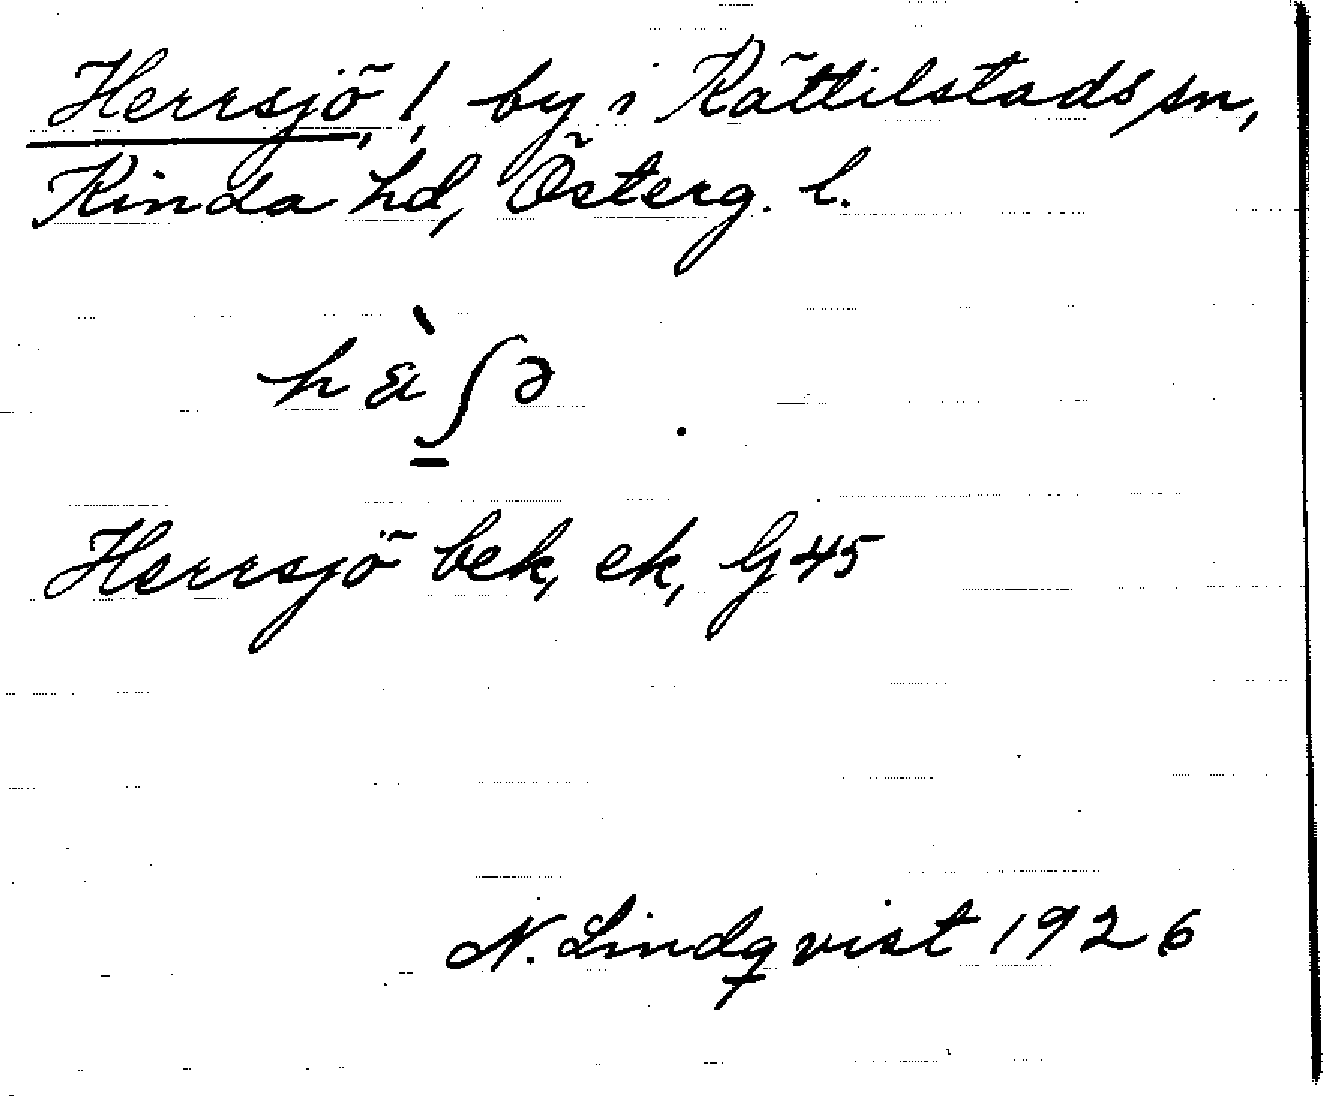 Herrsjö, !, by i Kättilstads sn,
Kinda hd, Österg. l.
hæ̀ʃə
Herrsjö bek, ek, G 45
N. Lindqvist 1926